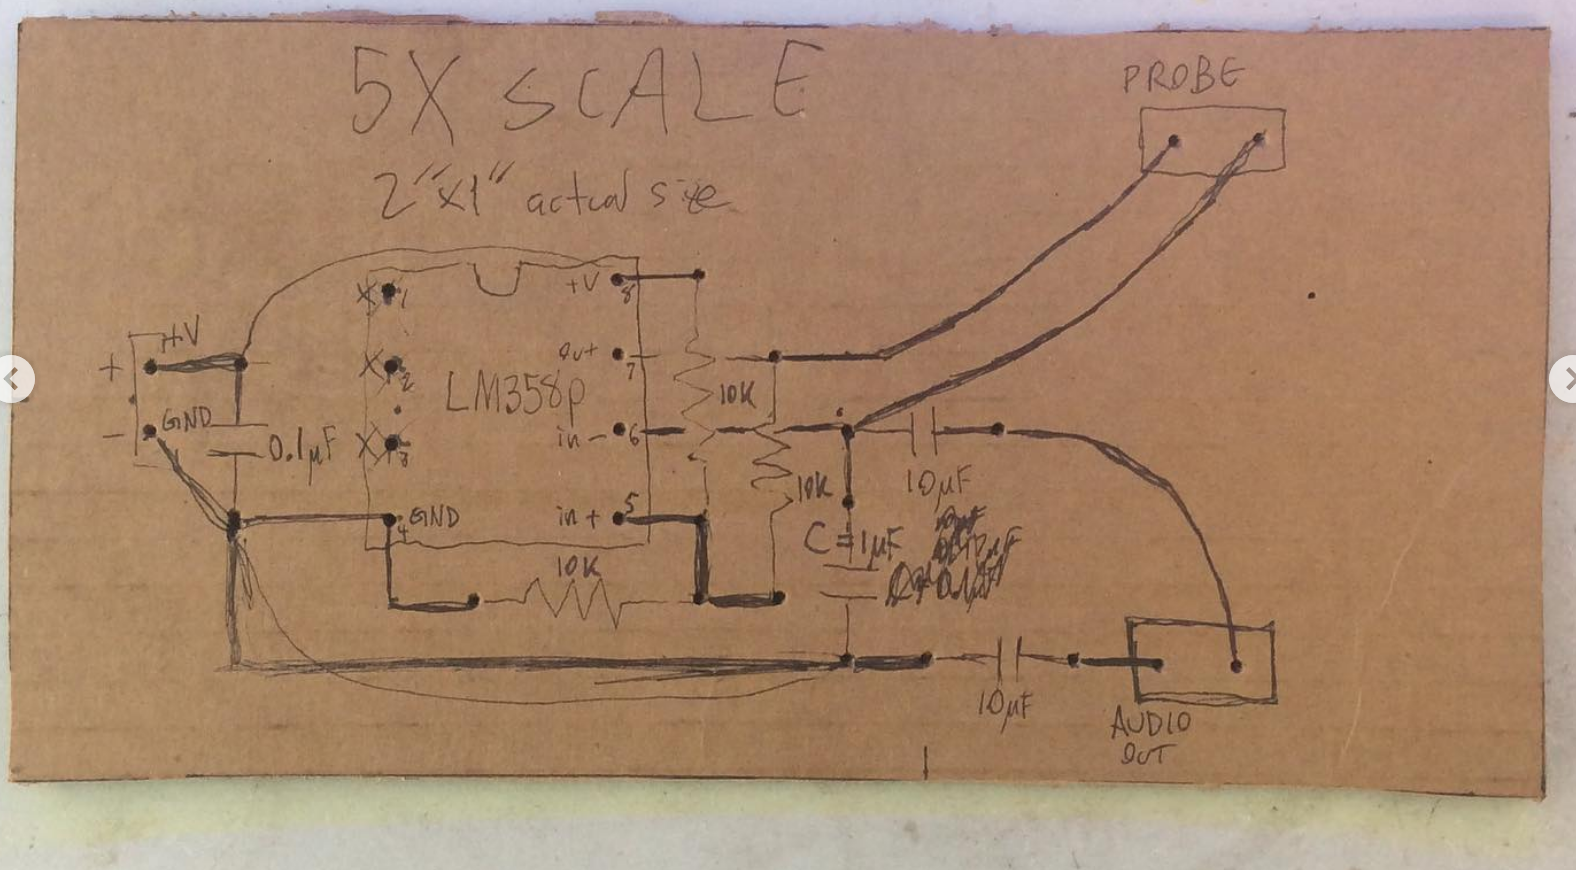 5X SCALE
2"x1" actual size
PROBE
+V
+
GND
-
0.1µF
1
2
3
4
GND
LM358p
+V
8
out
7
in-
6
in+
5
10K
10K
10K
10µF
C=1µF
10µF
AUDIO
OUT